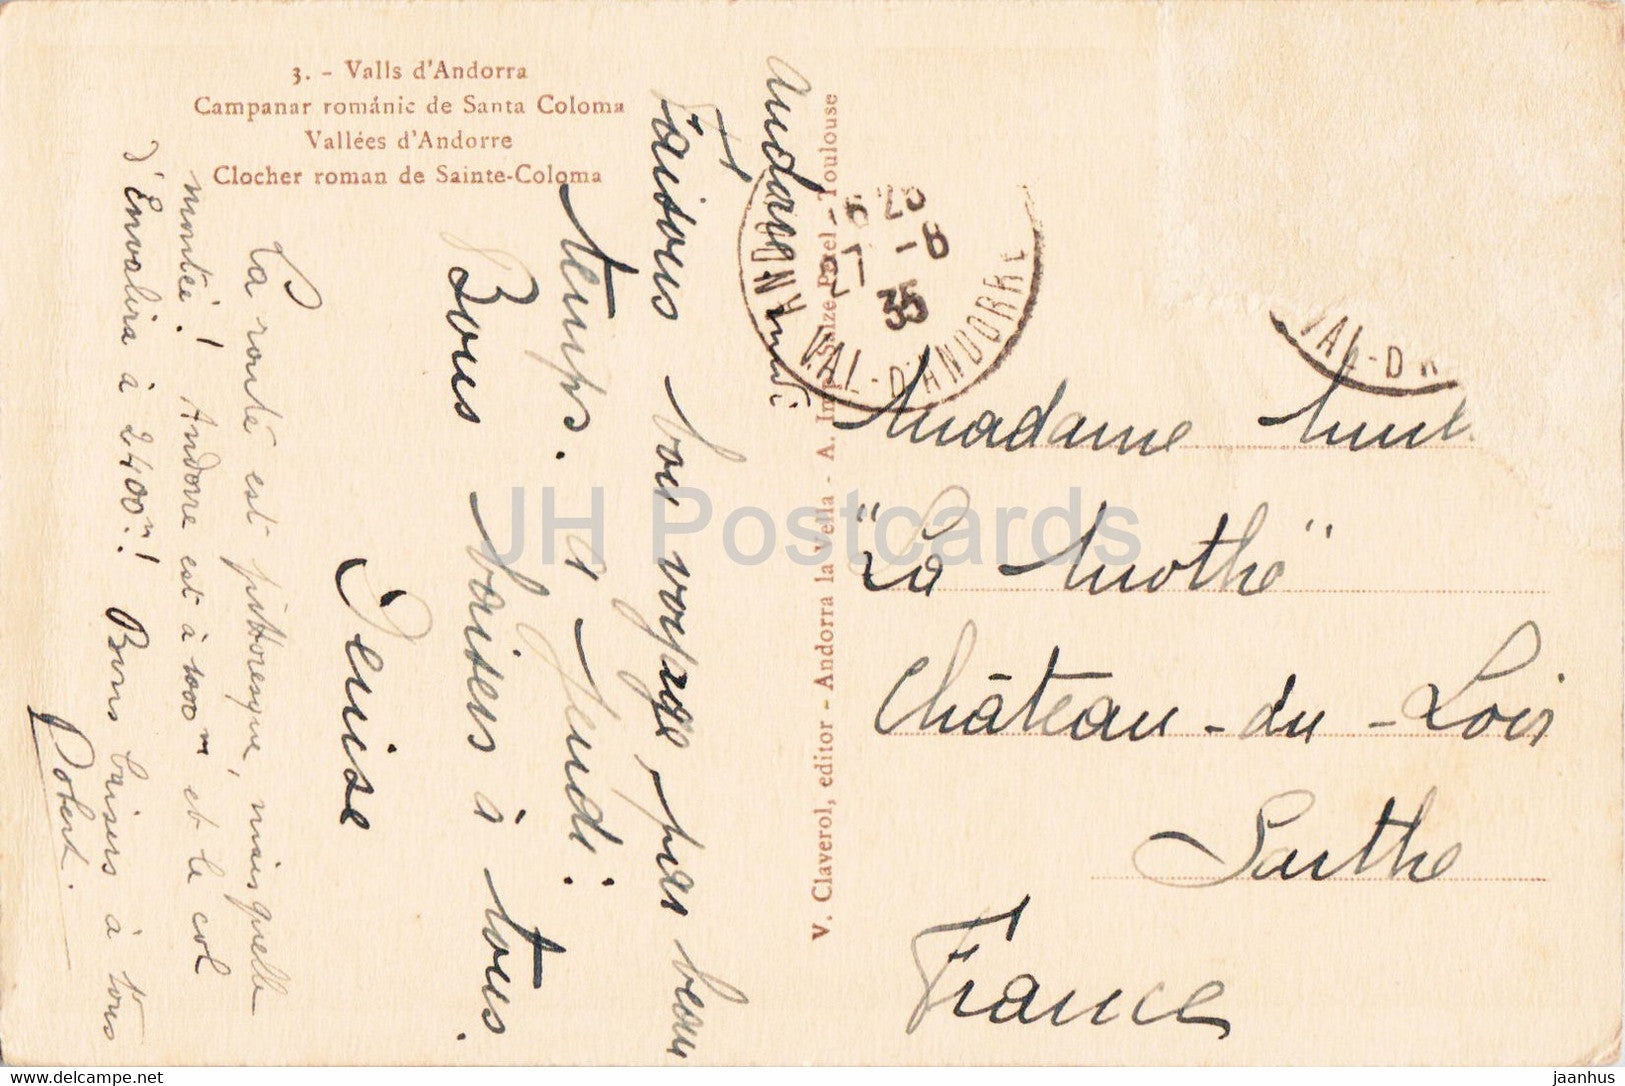 3. - Valls d'Andorra
Campanar románic de Santa Coloma
Vallées d'Andorre
Clocher roman de Sainte-Coloma
Andorre
mardi
Faisons bon voyage, pas beau
temps. à Jeudi.
Bons baisers à tous.
Denise
La route est pittoresque, mais quelle
montée! Andorre est à 1000m et le col
d'Envalira à 2400m! Bons baisers à tous
Robert.
V. Claverol, editor - Andorra la Vella - A. Toulouse
ANDORRE
VAL-D'ANDORRE
27 -8
35
VAL-D'A
Madame
"La Mothe"
Château-du-Loir
Sarthe
France
JH Postcards
jaanhus
www.delcampe.net